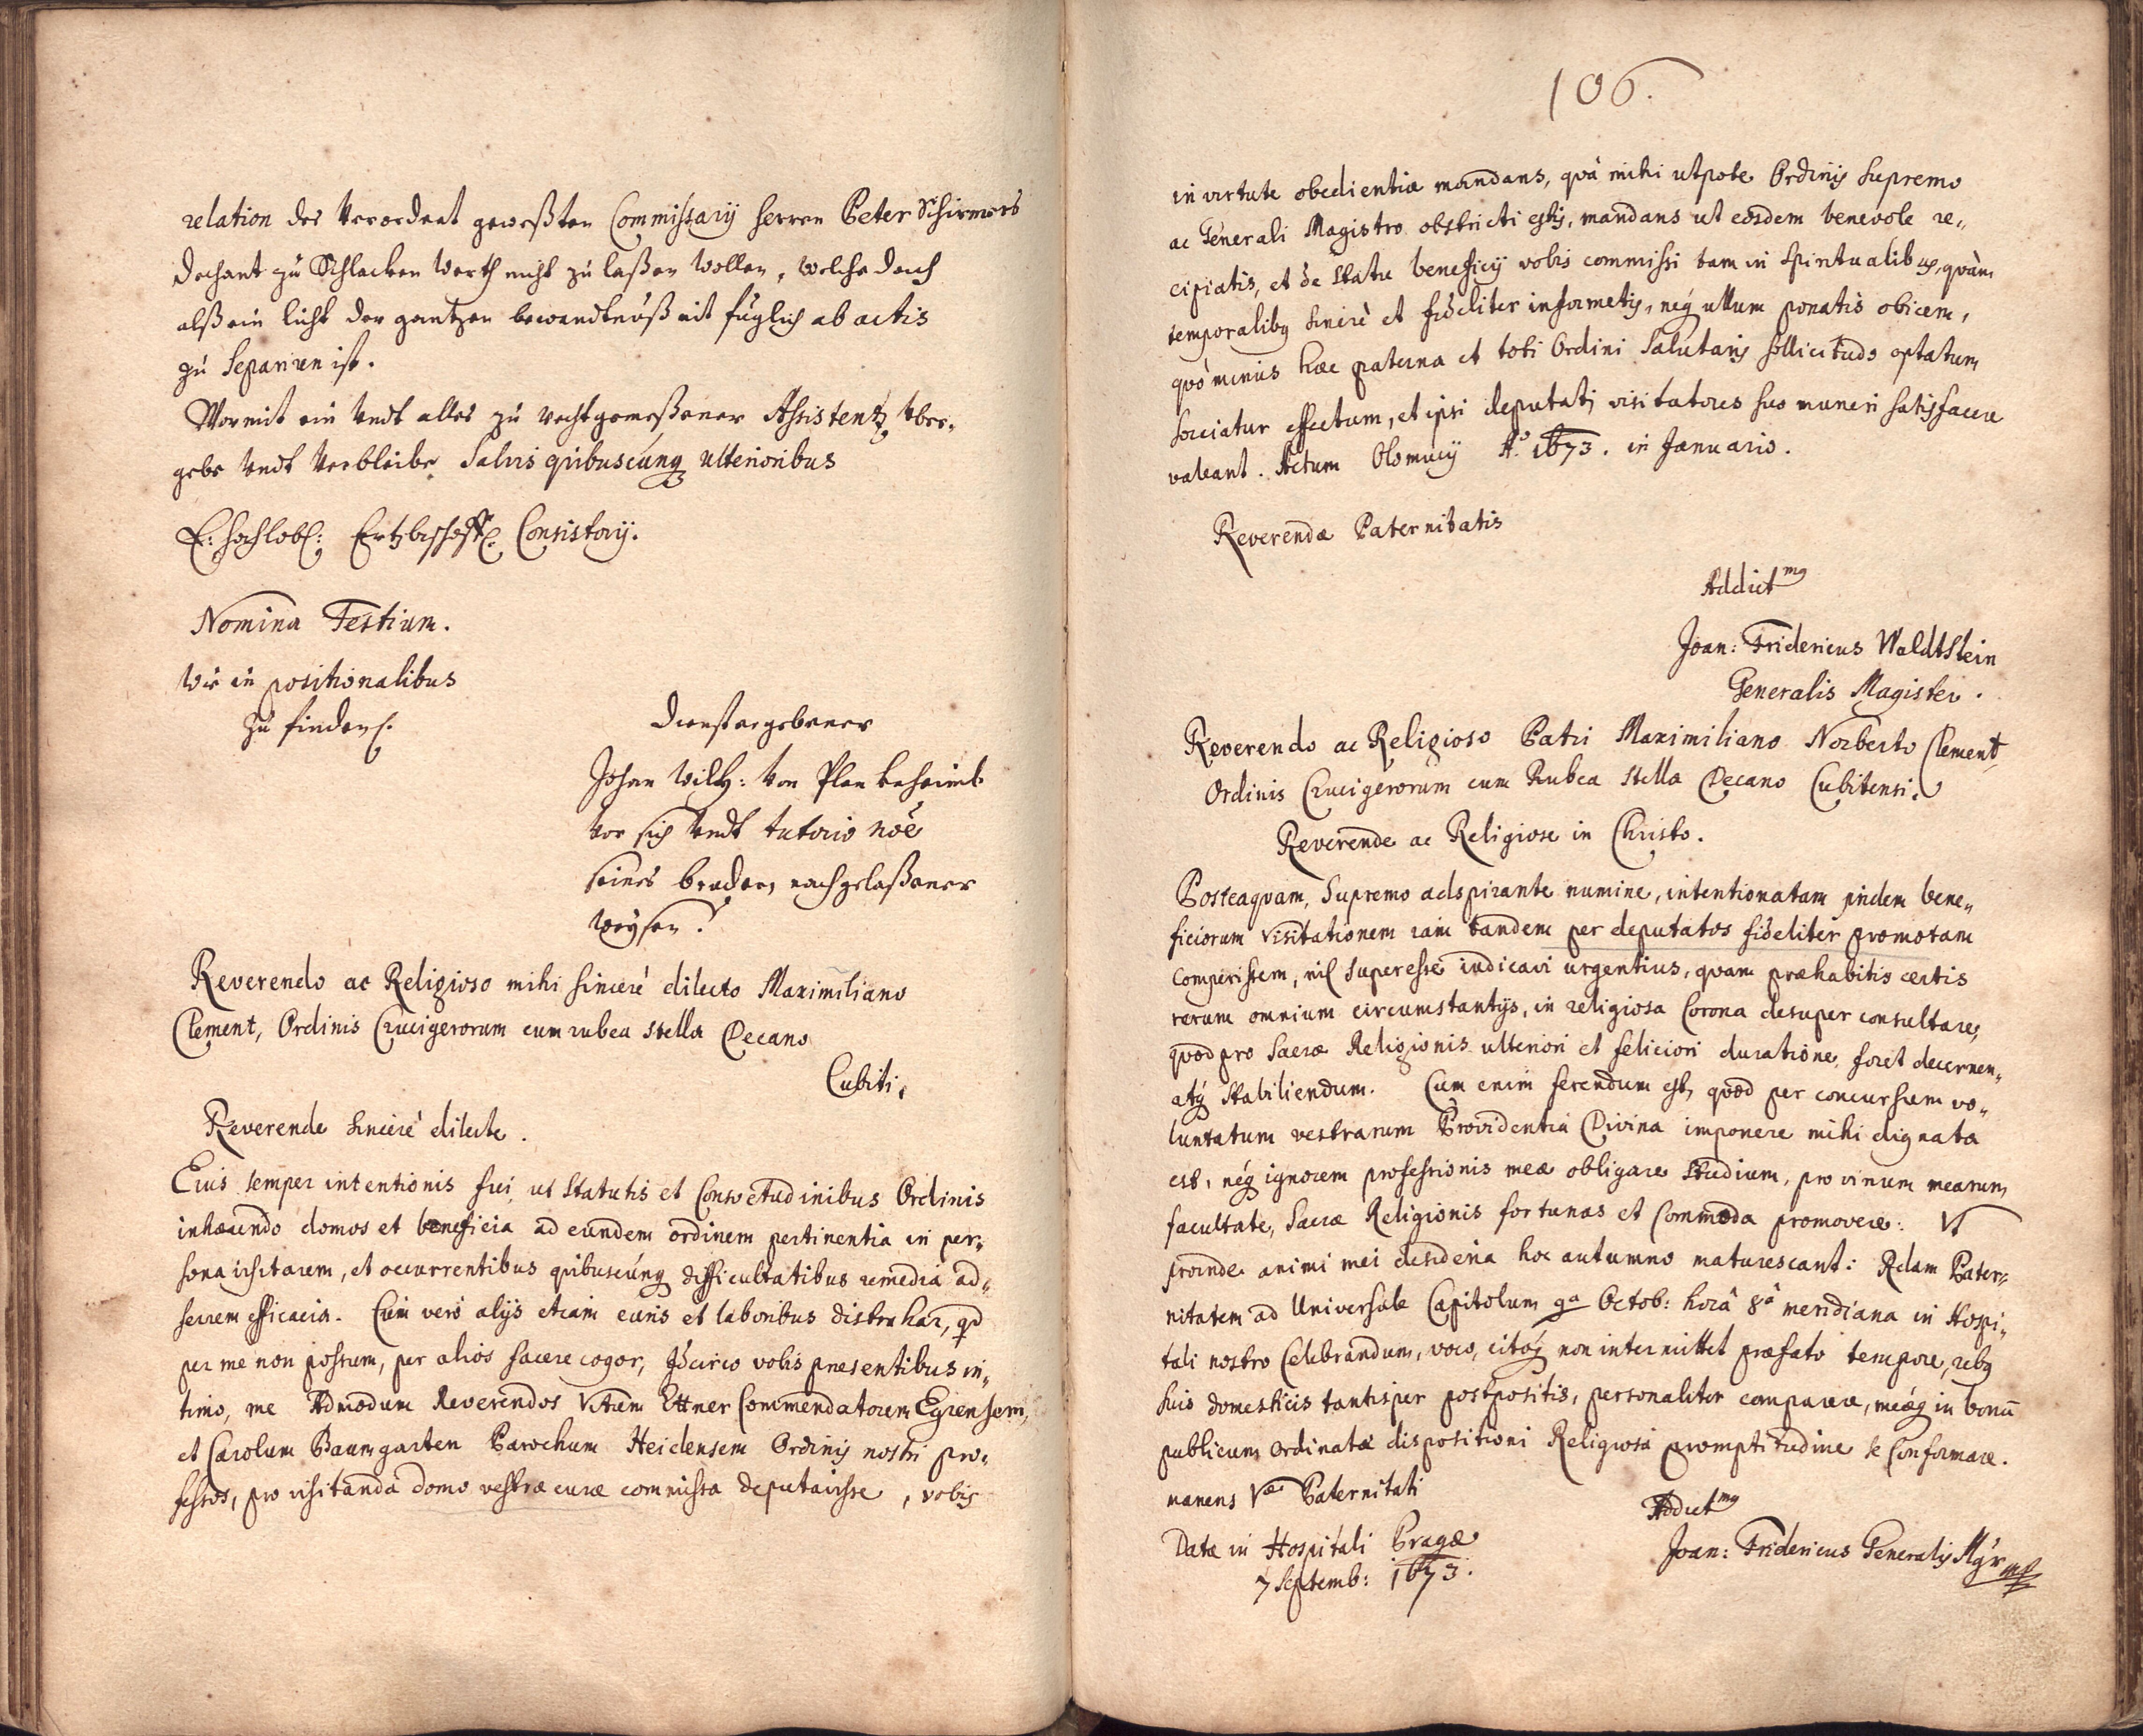 relation des verordent geweßten Commißarij Herren Peter Schirmers
Dechant zu Schlacken Werth nicht zu laßen wollen, welche doch
alß ein licht der gantzen bewandtnuß nit füglich ab actis
zu Separiren ist.
Wormit ein undt alles zu rechtgemeßener Assistentz über-
gebe undt verbleibe Salvis quibuscunq ulterioribus
E: hochlobl: Ertzbischoffl: Consistorij.
Nomina Testium.
wie in positionalibus
zu finden.
Dienstergebener
Johan Wilh: von Plan
vor sich undt tutorio noe
seines bruders nachgelaßener
Weysen.
Reverendo ac Religioso mihi sincerè dilecto Maximiliano
Clement, Ordinis Crucigerorum cum rubea stella Decano
Cubiti.
Reverende sincerè dilecte.
Eius semper intentionis fui, ut Statutis et Consvetudinibus Ordinis
inhærendo domos et beneficia ad eundem ordinem pertinentia in per-
sona visitarem, et occurrentibus quibuscunq difficultatibus remedia ad-
ferrem efficacia. Cum verò alijs etiam curis et laboribus distrahar, qd
per me non possum, per alios facere cogor, Idcirco vobis præsentibus in-
timo, me Admodum Reverendos Vitum Ettner Commendatorem Egrensem,
et Carolum Baumgarten Parochum Heidensem Ordinis nostri pro-
fessos, pro visitanda domo vestræ curæ commissa deputavisse, vobis
106.
in virtute obedientiæ mandans, quâ mihi utpote Ordinis supremo
ac Generali Magistro obstricti estis, mandans ut eosdem benevole re-
cipiatis, et de statu beneficij vobis commissi tam in spiritualibus, quàm
temporalibq sincerè et fideliter informetis, neq ullum ponatis obicem,
quò minus hæc paterna et toti Ordini Salutaris sollicitudo optatum
sorciatur effectum, et ipsi deputati visitatores suo muneri satisfacere
valeant. Actum Olomucij Aº 1673. in Januario.
Reverendæ Paternitatis
Addictmq
Joan: Fridericus Waldtstein
Generalis Magister.
Reverendo ac Religioso Patri Maximiliano Norberto Clement,
Ordinis Crucigerorum cum Rubea Stella Decano Cubitensi.
Reverende ac Religiose in Christo.
Posteaqvam, Supremo adspirante numine, intentionatam pridem bene-
ficiorum visitationem iam tandem per deputatos fideliter promotam
comperissem, nil superesse iudicavi urgentius, quam præhabitis certis
rerum omnium circumstantijs, in religiosa Corona desuper consultare,
quod pro Sacræ Religionis ulteriori et feliciori duratione, foret decernen-
atq stabiliendum. Cum enim ferendum est, quod per concursum vo-
luntatum vestrarum Providentia Divina imponere mihi dignata
est, neq ignorem professionis meæ obligare studium, pro virium mearum
facultate, Sacræ Religionis fortunas et Commoda promovere: Ut
proinde animi mei desideria hoc autumno maturescant: Rdam Pater-
nitatem ad Universale Capitolum 9a Octob: horâ 8â meridiana in Hospi-
tali nostro Celebrandum, voco, citoq non intermittet præfato tempore, rebq
suis domesticis tantisper postpositis, personaliter comparere, meæq in bonū
publicum ordinatæ dispositioni Religiosâ promptitudine se Conformare.
manens Væ Paternitati
Addictmq
Datæ in Hospitali Pragæ
7 Septemb: 1673.
Joan: Fridericus Generalis Mgr mp